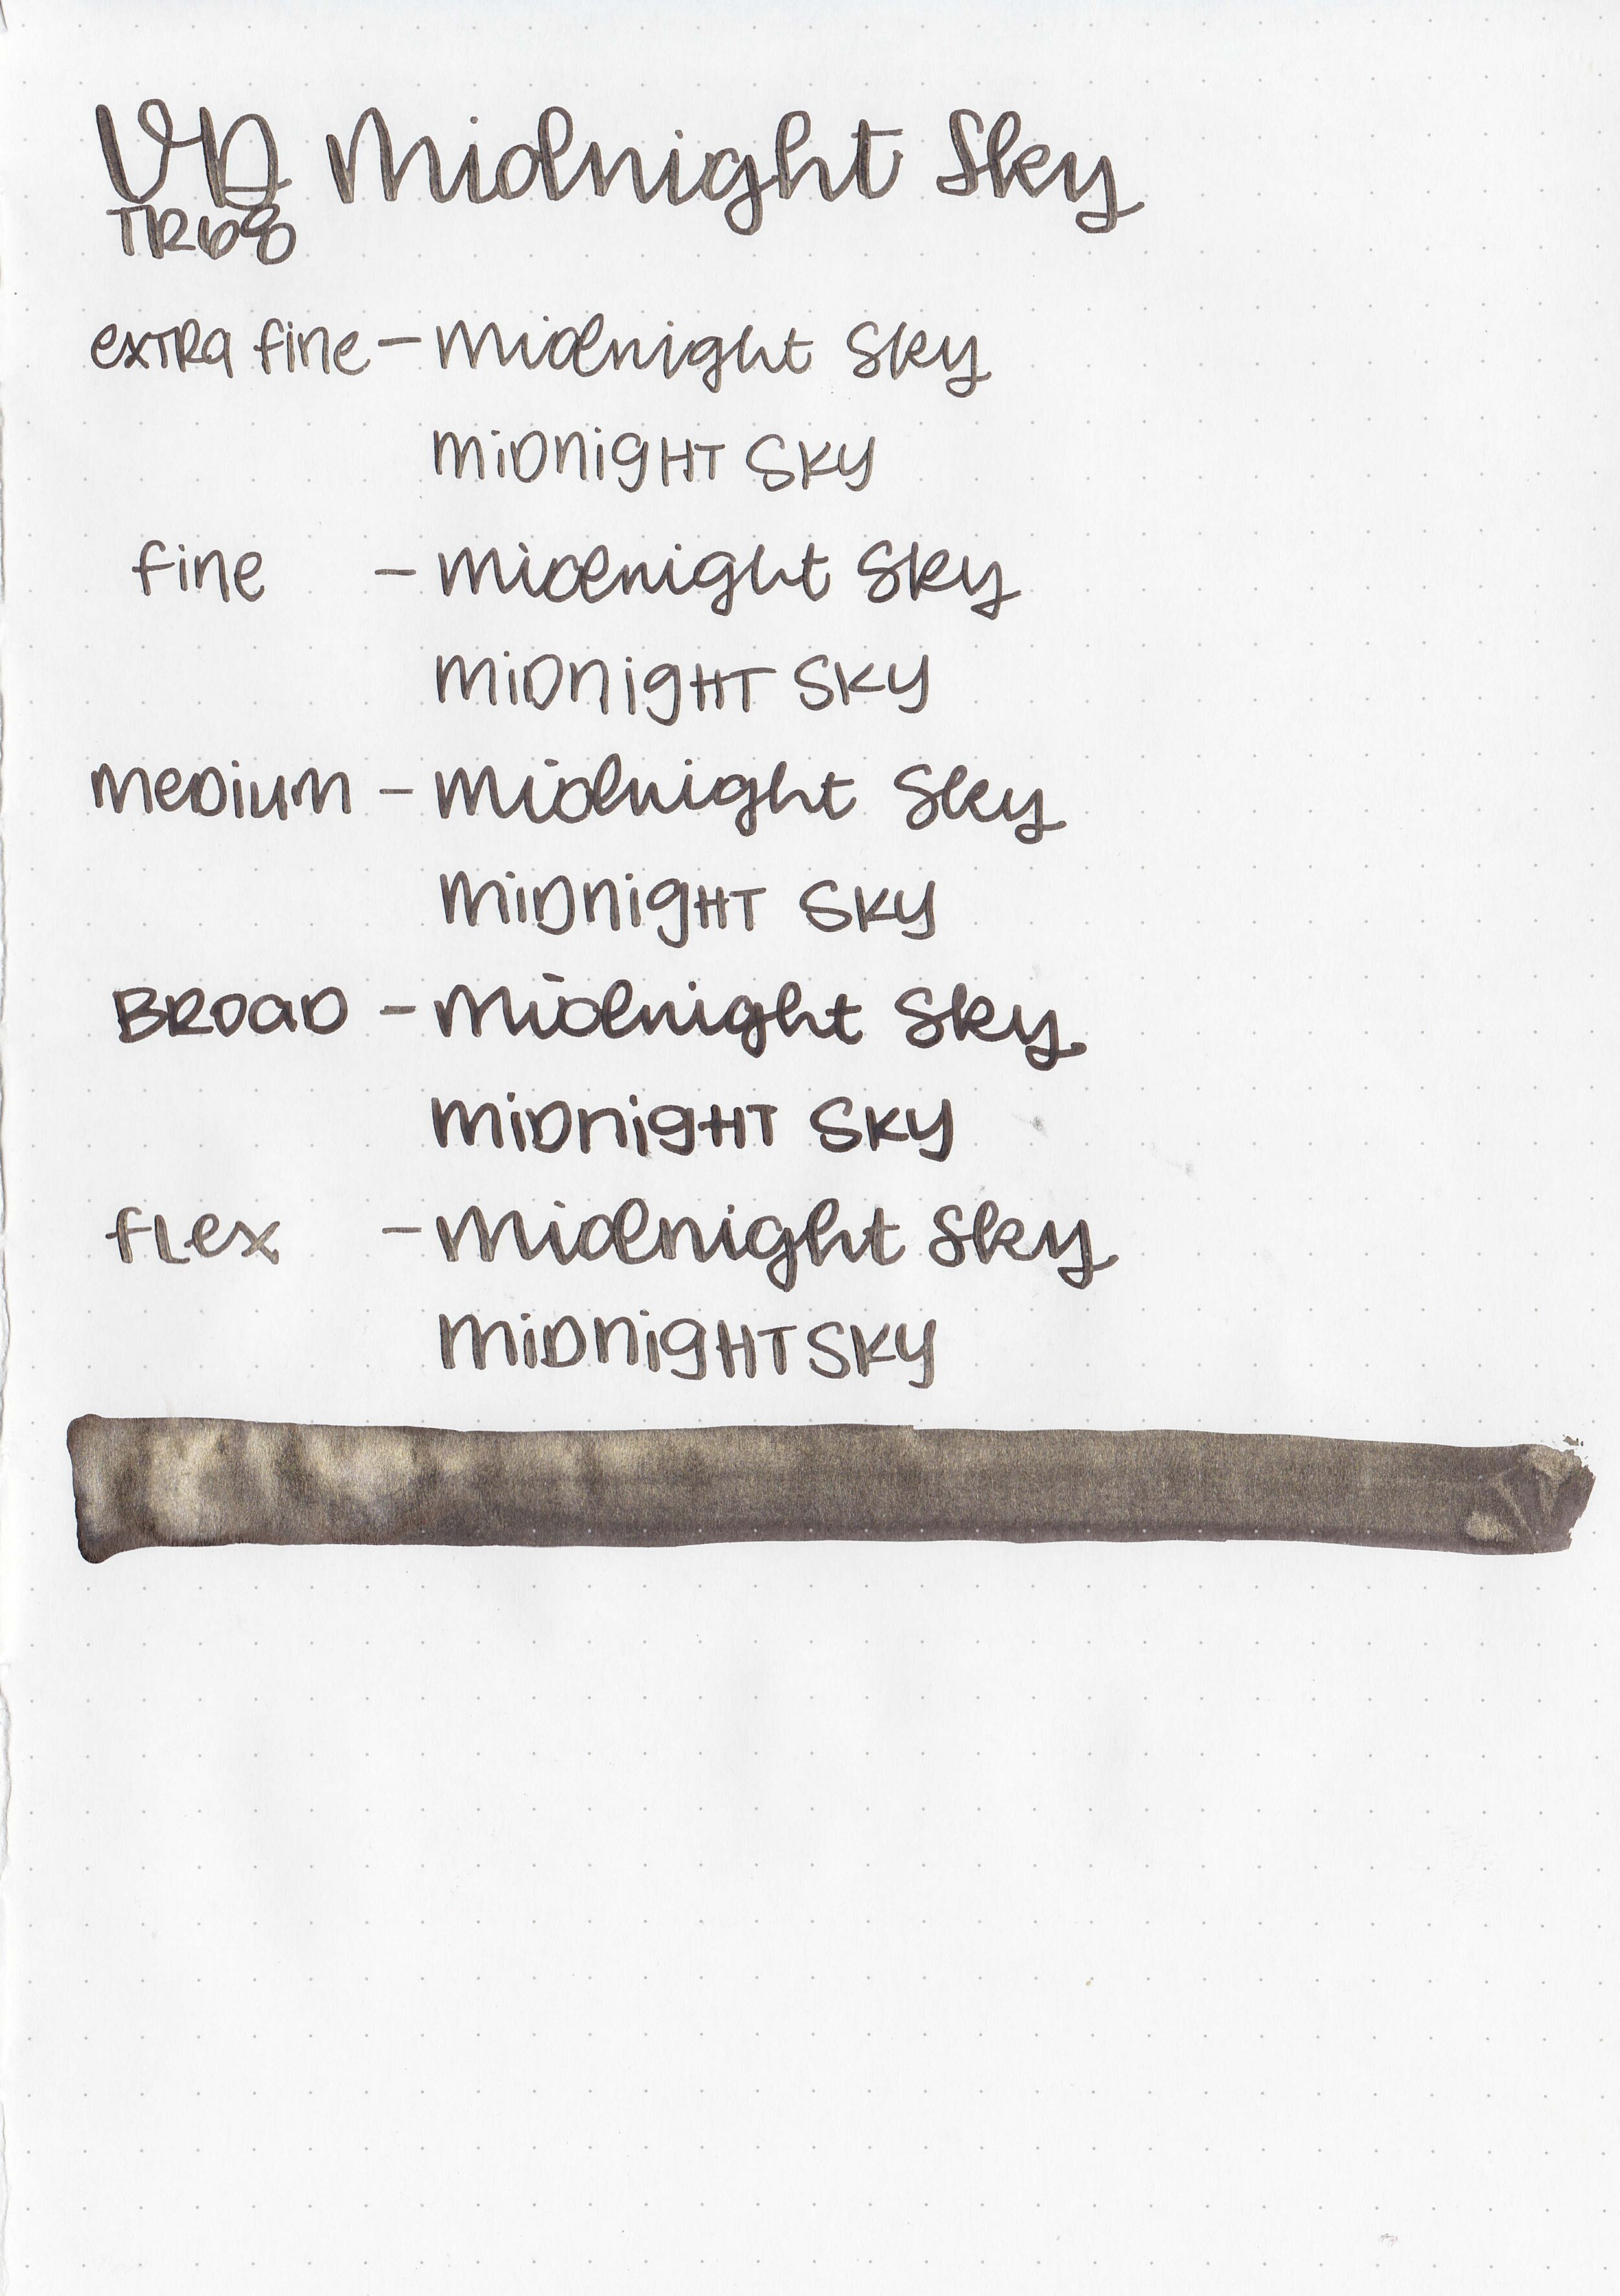 VD Midnight Sky
TR68
extra fine - Midnight Sky
MIDNIGHT SKY
fine - Midnight Sky
MIDNIGHT SKY
MEDIUM - Midnight Sky
MIDNIGHT SKY
BROAD - Midnight Sky
MIDNIGHT SKY
flex - Midnight Sky
MIDNIGHT SKY